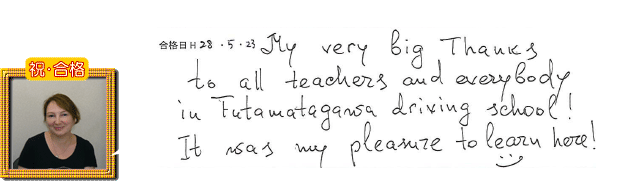 祝・合格
合格日H28・5・23 My very big Thanks
to all teachers and everybody
in Futamatagawa driving school!
It was my pleasure to learn here!